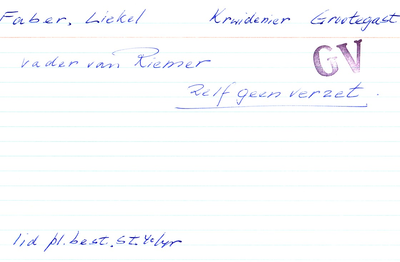 Faber, Liekel Kruidenier Grootegast
vader van Riemer
GV
zelf geen verzet.
lid pl. best. St. 40/45